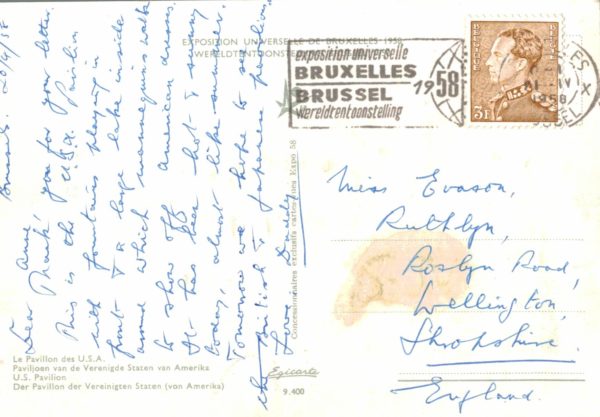 EXPOSITION UNIVERSELLE DE BRUXELLES 1958
WERELDTENTOONSTELLING
Brussels. 20/4/58
Dear Anne,
Thank you for your letter.
This is the U.S.A. Pavilion
with fountains playing in
front & a large lake inside
around which mannequins walk
to show off American dresses.
It has been hot & sunny
today, almost like summer.
Tomorrow we hope to see
the British & Japanese pavilions.
Love
Le Pavillon des U.S.A.
Paviljoen van de Verenigde Staten van Amerika
U.S. Pavilion
Der Pavillon der Vereinigten Staten (von Amerika)
Concessionnaires exclusifs cartes vues Expo 58
Egicarte
9.400
exposition universelle
BRUXELLES
BRUSSEL
wereldtentoonstelling
1958
BELGIE BELGIQUE
3F
1958
X
Miss Evason,
Ruthlyn,
Roslyn Road,
Wellington,
Shropshire.
England.